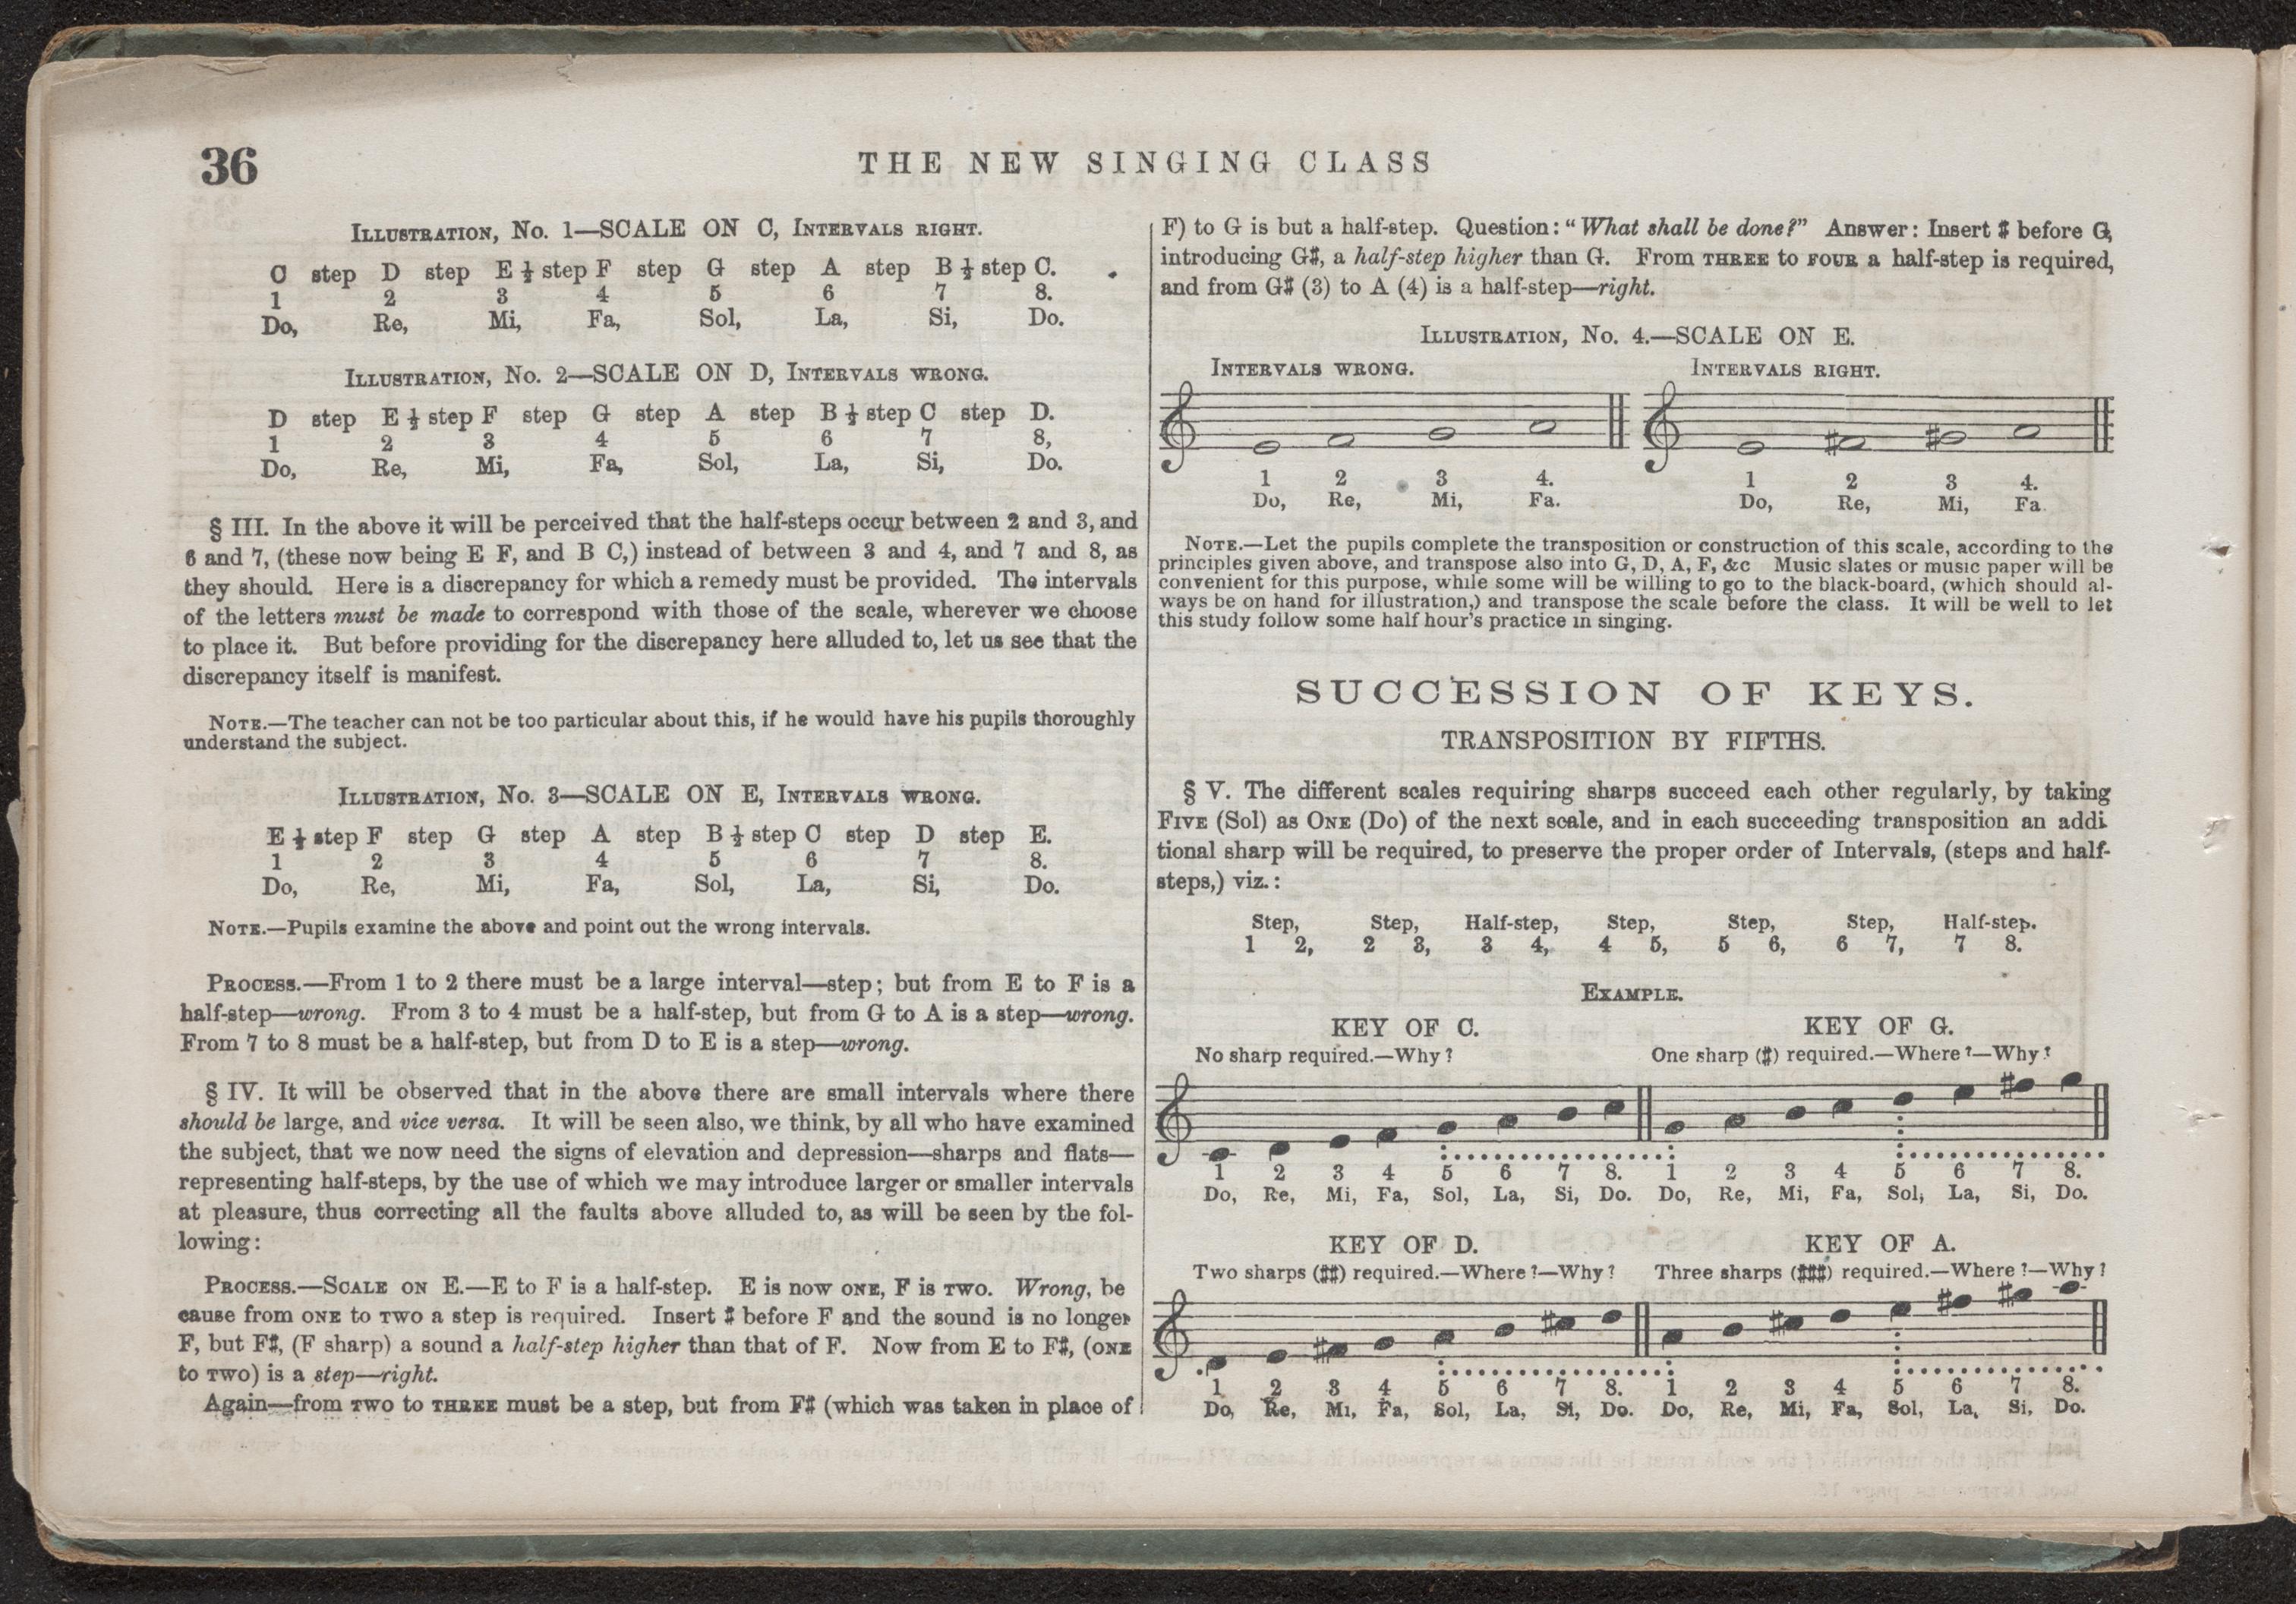 36
THE NEW SINGING CLASS
ILLUSTRATION, No. 1—SCALE ON C, INTERVALS RIGHT.
C step D step E ½ step F step G step A step B ½ step C.
1 2 3 4 5 6 7 8.
Do, Re, Mi, Fa, Sol, La, Si, Do.
ILLUSTRATION, No. 2—SCALE ON D, INTERVALS WRONG.
D step E ½ step F step G step A step B ½ step C step D.
1 2 3 4 5 6 7 8,
Do, Re, Mi, Fa, Sol, La, Si, Do.
§ III. In the above it will be perceived that the half-steps occur between 2 and 3, and
6 and 7, (these now being E F, and B C,) instead of between 3 and 4, and 7 and 8, as
they should. Here is a discrepancy for which a remedy must be provided. The intervals
of the letters must be made to correspond with those of the scale, wherever we choose
to place it. But before providing for the discrepancy here alluded to, let us see that the
discrepancy itself is manifest.
NOTE.—The teacher can not be too particular about this, if he would have his pupils thoroughly
understand the subject.
ILLUSTRATION, No. 3—SCALE ON E, INTERVALS WRONG.
E ½ step F step G step A step B ½ step C step D step E.
1 2 3 4 5 6 7 8.
Do, Re, Mi, Fa, Sol, La, Si, Do.
NOTE.—Pupils examine the above and point out the wrong intervals.
PROCESS.—From 1 to 2 there must be a large interval—step; but from E to F is a
half-step—wrong. From 3 to 4 must be a half-step, but from G to A is a step—wrong.
From 7 to 8 must be a half-step, but from D to E is a step—wrong.
§ IV. It will be observed that in the above there are small intervals where there
should be large, and vice versa. It will be seen also, we think, by all who have examined
the subject, that we now need the signs of elevation and depression—sharps and flats—
representing half-steps, by the use of which we may introduce larger or smaller intervals
at pleasure, thus correcting all the faults above alluded to, as will be seen by the fol-
lowing:
PROCESS.—SCALE ON E.—E to F is a half-step. E is now ONE, F is TWO. Wrong, be
cause from ONE to TWO a step is required. Insert ♯ before F and the sound is no longer
F, but F♯, (F sharp) a sound a half-step higher than that of F. Now from E to F♯, (ONE
to TWO) is a step—right.
Again—from TWO to THREE must be a step, but from F♯ (which was taken in place of
F) to G is but a half-step. Question: "What shall be done?" Answer: Insert ♯ before G,
introducing G♯, a half-step higher than G. From THREE to FOUR a half-step is required,
and from G♯ (3) to A (4) is a half-step—right.
ILLUSTRATION, No. 4.—SCALE ON E.
INTERVALS WRONG. INTERVALS RIGHT.
1 2 3 4. 1 2 3 4.
Do, Re, Mi, Fa. Do, Re, Mi, Fa.
NOTE.—Let the pupils complete the transposition or construction of this scale, according to the
principles given above, and transpose also into G, D, A, F, &c Music slates or music paper will be
convenient for this purpose, while some will be willing to go to the black-board, (which should al-
ways be on hand for illustration,) and transpose the scale before the class. It will be well to let
this study follow some half hour's practice in singing.
SUCCESSION OF KEYS.
TRANSPOSITION BY FIFTHS.
§ V. The different scales requiring sharps succeed each other regularly, by taking
FIVE (Sol) as ONE (Do) of the next scale, and in each succeeding transposition an addi
tional sharp will be required, to preserve the proper order of Intervals, (steps and half-
steps,) viz.:
Step, Step, Half-step, Step, Step, Step, Half-step.
1 2, 2 3, 3 4, 4 5, 5 6, 6 7, 7 8.
EXAMPLE.
KEY OF C. KEY OF G.
No sharp required.—Why? One sharp (♯) required.—Where?—Why?
1 2 3 4 5 6 7 8. 1 2 3 4 5 6 7 8.
Do, Re, Mi, Fa, Sol, La, Si, Do. Do, Re, Mi, Fa, Sol, La, Si, Do.
KEY OF D. KEY OF A.
Two sharps (♯♯) required.—Where?—Why? Three sharps (♯♯♯) required.—Where?—Why?
1 2 3 4 5 6 7 8. 1 2 3 4 5 6 7 8.
Do, Re, Mi, Fa, Sol, La, Si, Do. Do, Re, Mi, Fa, Sol, La, Si, Do.